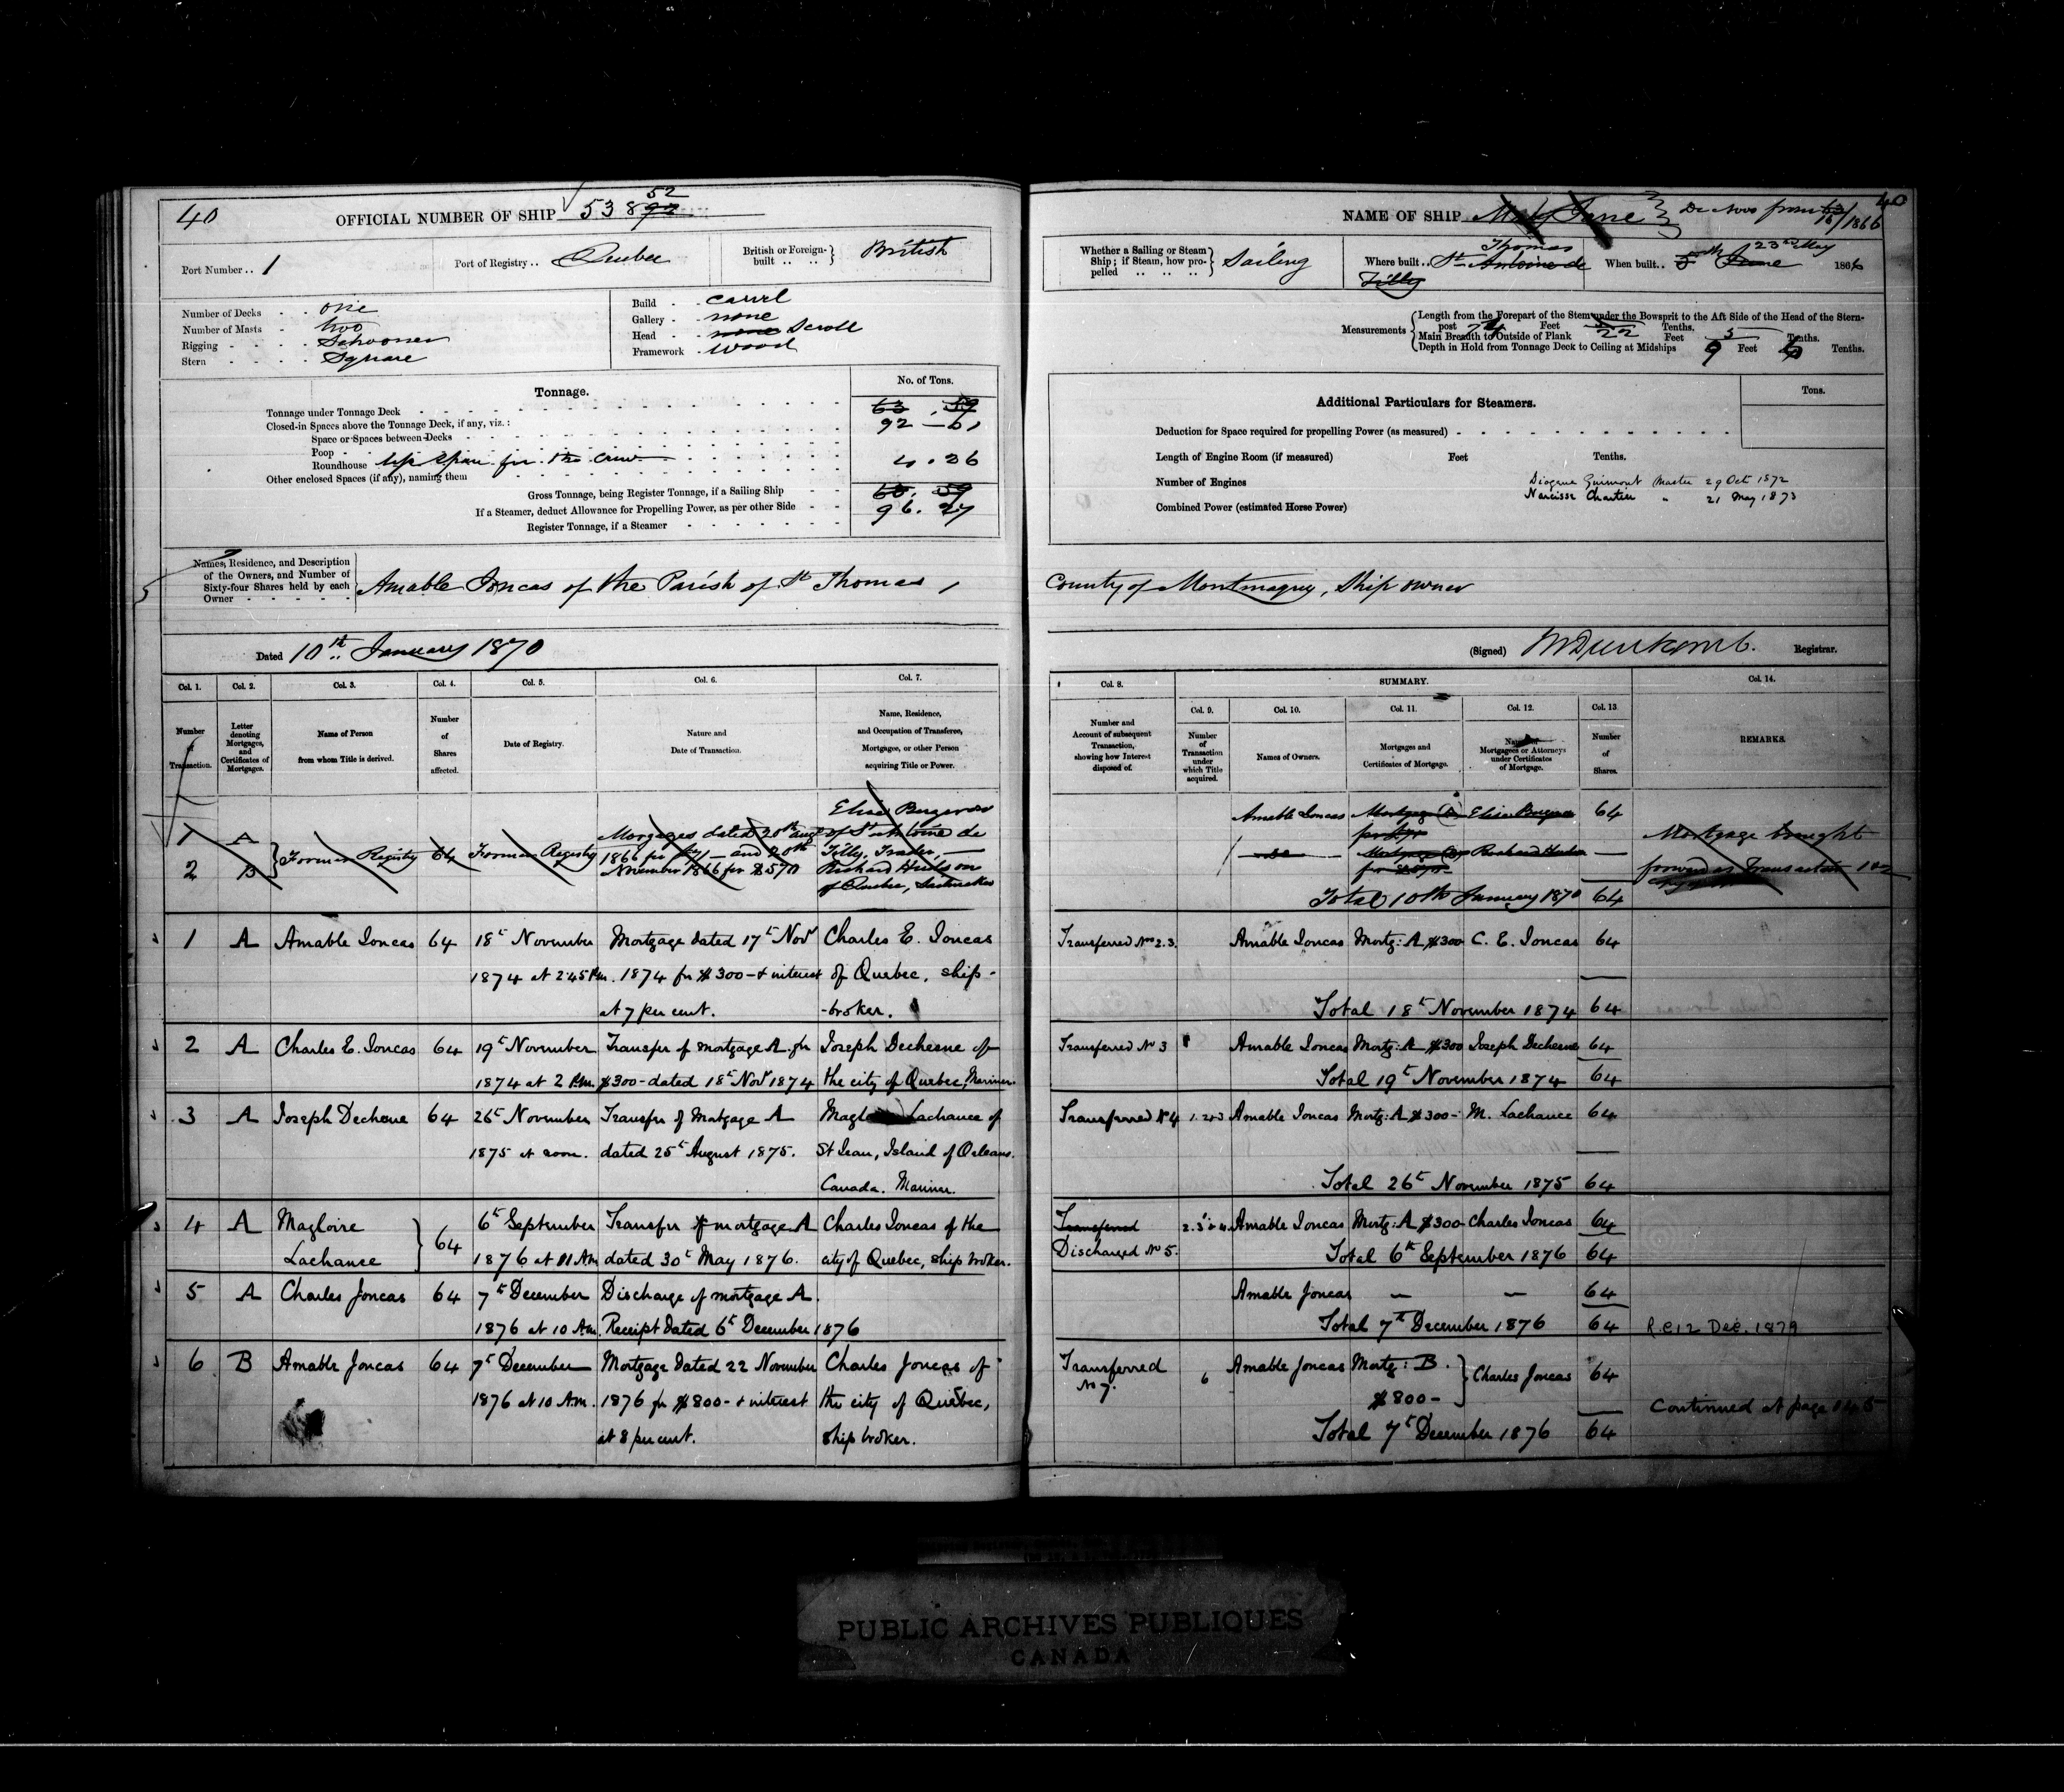 40
OFFICIAL NUMBER OF SHIP 53892 52
Port Number . . 1
Port of Registry . . Quebec
British or Foreign-built . . . . } British
Number of Decks . . one
Number of Masts - two
Rigging - - - . Schooner
Stern - - - - Square
Build - . carvel
Gallery - . none
Head - . none Scroll
Framework . wood
Tonnage.
No. of Tons.
Tonnage under Tonnage Deck 63 . 59
Closed-in Spaces above the Tonnage Deck, if any, viz. : 92 – 61
Space or Spaces between Decks
Poop
Roundhouse for the crew 4 . 26
Other enclosed Spaces (if any), naming them
Gross Tonnage, being Register Tonnage, if a Sailing Ship 63. 59
If a Steamer, deduct Allowance for Propelling Power, as per other Side 96. 27
Register Tonnage, if a Steamer
Names, Residence, and Description of the Owners, and Number of Sixty-four Shares held by each Owner
Amable Joncas of the Parish of St Thomas,
Dated 10th January 1870
Col. 1. Col. 2. Col. 3. Col. 4. Col. 5. Col. 6. Col. 7.
Number of Transaction.
Letter denoting Mortgages, and Certificates of Mortgages.
Name of Person from whom Title is derived.
Number of Shares affected.
Date of Registry.
Nature and Date of Transaction.
Name, Residence, and Occupation of Transferee, Mortgagee, or other Person acquiring Title or Power.
1 A
2 B } Former Registry 64 Former Registry
Morgages dated 20th augt
1866 for and 20th
November 1866 for $570
of St Antoine de
Tilly, Trader, —
Richard Hudson
of Quebec,
1 A Amable Joncas 64 18th November Mortgage dated 17th Novr Charles E. Joncas
1874 at 2.45 Pm. 1874 for $300 – & interest of Quebec, ship-
at 7 per cent. -broker.
2 A Charles E. Joncas 64 19th November Transfer of mortgage A for Joseph Dechesne of
1874 at 2 Pm. $300 – dated 18th Novr 1874 the city of Quebec, Mariner.
3 A Joseph Dechene 64 26th November Transfer of Mortgage A Lachance of
1875 at noon. dated 25th August 1875. St Jean, Island of Orleans.
Canada. Mariner.
4 A Magloire 6th September Transfer of mortgage A Charles Joncas of the
Lachance } 64 1876 at 11 Am dated 30th May 1876. city of Quebec, ship broker.
5 A Charles Joncas 64 7th December Discharge of mortgage A.
1876 at 10 Am. Receipt dated 6th December 1876
6 B Amable Joncas 64 7th December Mortgage dated 22 November Charles Joncas of
1876 at 10 Am. 1876 for $800 – & interest the city of Quebec,
at 8 per cent. ship broker.
40
NAME OF SHIP Mary Jane } De Novo from 16/1866
Whether a Sailing or Steam Ship; if Steam, how propelled . . . . } Sailing
Where built . . St Thomas Antoine de Tilly
When built . . 5th June 23rd May 1866
Measurements { Length from the Forepart of the Stem under the Bowsprit to the Aft Side of the Head of the Stern-
post 74 Feet Tenths.
Main Breadth to Outside of Plank 22 Feet 3 Tenths.
Depth in Hold from Tonnage Deck to Ceiling at Midships 9 Feet Tenths.
Tons.
Additional Particulars for Steamers.
Deduction for Space required for propelling Power (as measured)
Length of Engine Room (if measured) Feet Tenths.
Number of Engines
Combined Power (estimated Horse Power)
Guimont Master 29 Oct 1872
Narcisse Chartier " 21 May 1873
County of Montmagny, Ship owner
(Signed) Registrar.
SUMMARY.
Col. 8. Col. 9. Col. 10. Col. 11. Col. 12. Col. 13. Col. 14.
Number and Account of subsequent Transaction, showing how Interest disposed of.
Number of Transaction under which Title acquired.
Names of Owners.
Mortgages and Certificates of Mortgage.
Names of Mortgagees or Attorneys under Certificates of Mortgage.
Number of Shares.
REMARKS.
Amable Joncas Mortgage (A) 64
Mortgage (B) Richard Hudson —
Total 10th January 1870 64
Mortgage brought
forward as Transaction 1&2
Transferred Nos 2.3. Amable Joncas Mortg: A $300 C. E. Joncas 64
Total 18th November 1874 64
Transferred No 3 Amable Joncas Mortg: A $300 Joseph Dechesne 64
Total 19th November 1874 64
Transferred No 4 1. 2&3 Amable Joncas Mortg: A $300 – M. Lachance 64
Total 26th November 1875 64
Transferred 2. 3 & 4. Amable Joncas Mortg: A $300 – Charles Joncas 64
Discharged No 5. Total 6th September 1876 64
Amable Joncas — — 64
Total 7th December 1876 64 R.C. 12 Dec. 1879
Transferred No 7. 6 Amable Joncas Mortg: B. $800 – } Charles Joncas 64
Continued at page 145
Total 7th December 1876 64
PUBLIC ARCHIVES PUBLIQUES
CANADA